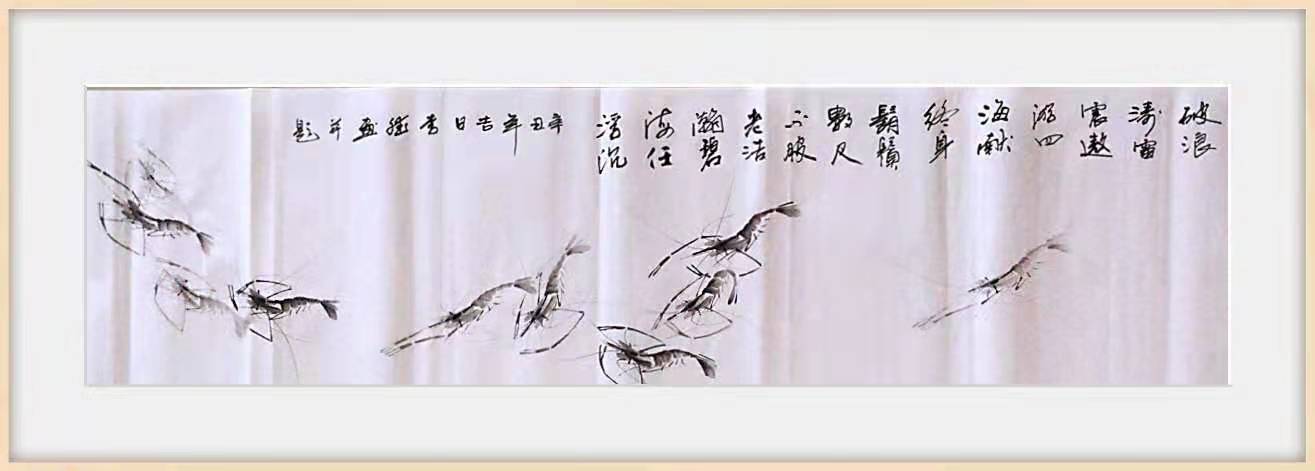 破浪
涛雷
震遨
游四
海献
终身
鬍鬚
数尺
不服
老浩
瀚碧
海任
浮沉
辛丑年吉日画并题